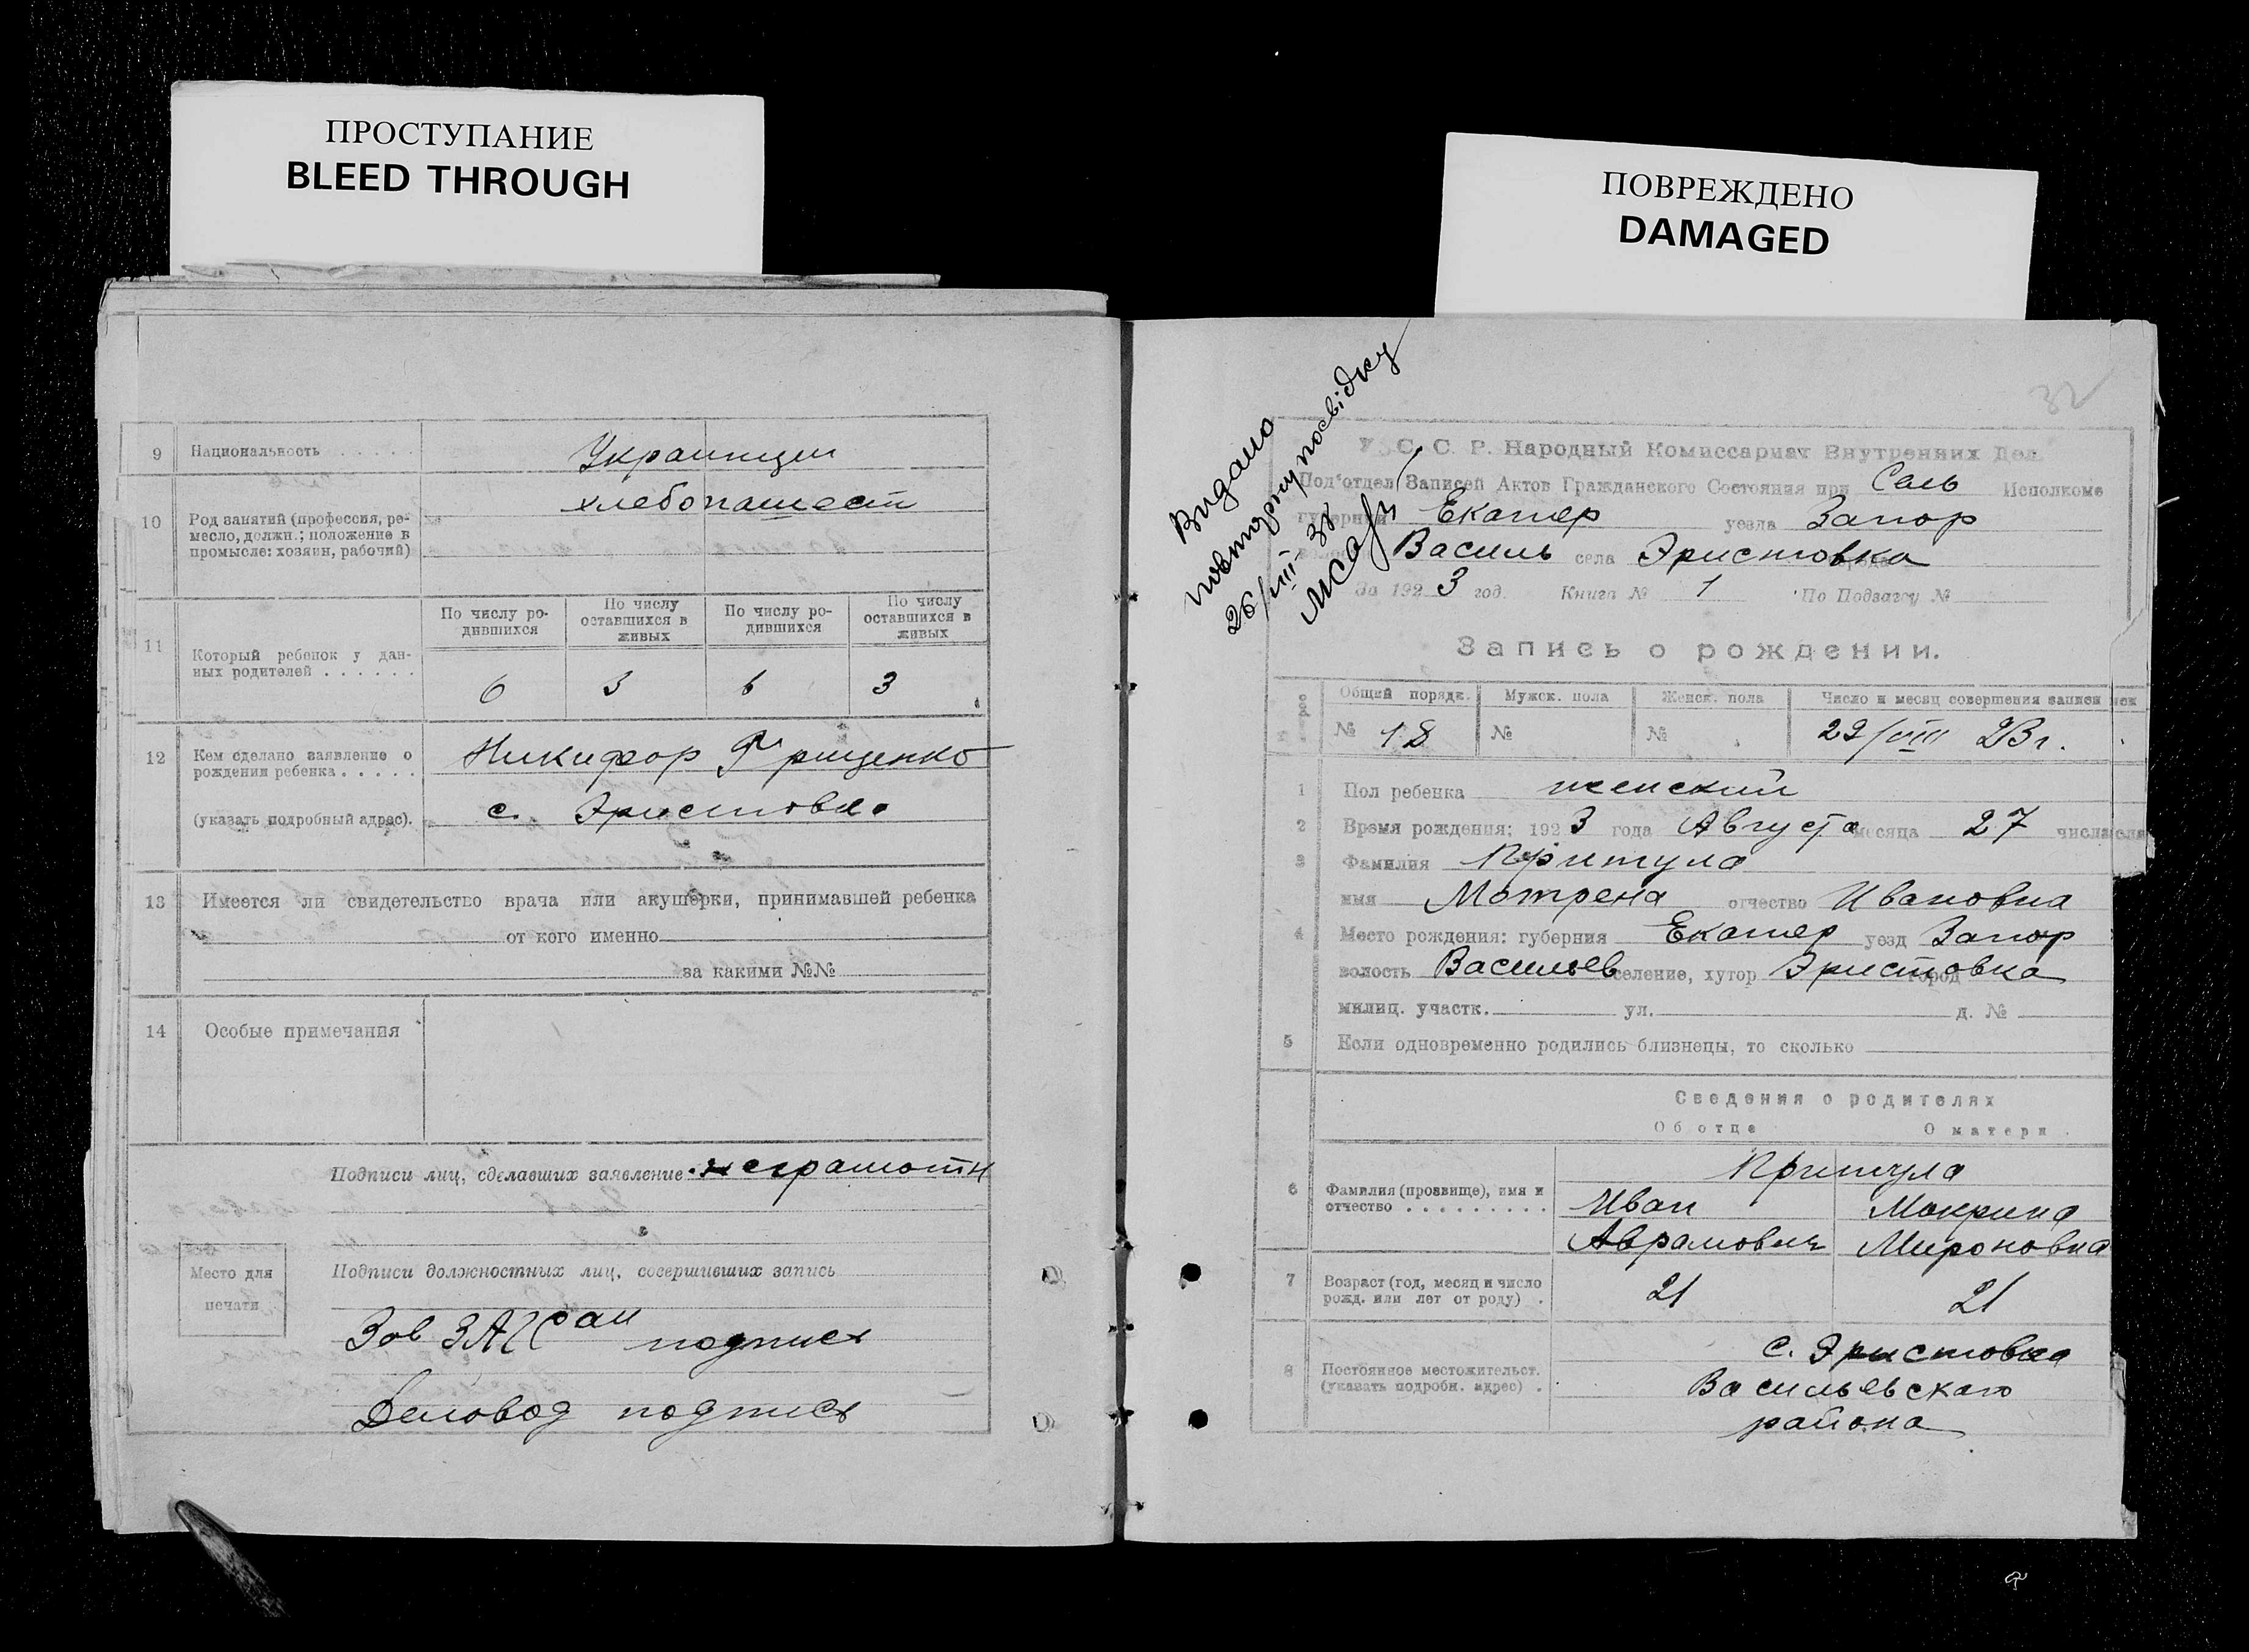 ПРОСТУПАНИЕ
BLEED THROUGH
ПОВРЕЖДЕНО
DAMAGED
9 Национальность . . . . . Украинцы
10 Род занятий (профессия, ре-
месло, должн.; положение в
промысле: хозяин, рабочий)
хлебопашест
11 Который ребенок у дан-
ных родителей . . . . . .
По числу ро-
дившихся
По числу
оставшихся в
живых
По числу ро-
дившихся
По числу
оставшихся в
живых
6 3 6 3
12 Кем сделано заявление о
рождении ребенка . . . . .
Никифор Грищенко
(указать подробный адрес). с. Эристовка
13 Имеется ли свидетельство врача или акушерки, принимавшей ребенка
от кого именно
за какими №№
14 Особые примечания
Подписи лиц, сделавших заявление неграмотн
Место для
печати
Подписи должностных лиц, совершивших запись
Зав ЗАГСом подпись
Деловод подпись
Видано
повторну посвідку
26/VIII 38
32
У. С. С. Р. Народный Комиссариат Внутренних Дел
Под'отдел Записей Актов Гражданского Состояния при Сель Исполкоме
губернии Екатер уезда Запор
Василь села Эристовка
За 1923 год. Книга № 1 По Подзагсу №
Запись о рождении.
Общий порядк. Мужск. пола Женск. пола Число и месяц совершения записи
№ 18 № № 29/VIII 23 г.
1 Пол ребенка женский
2 Время рождения: 1923 года Августа месяца 27 числа
3 Фамилия Притула
имя Мотрена отчество Ивановна
4 Место рождения: губерния Екатер уезд Запор
волость Васильев селение, хутор Эристовка город
милиц. участк. ул. д. №
5 Если одновременно родились близнецы, то сколько
Сведения о родителях
Об отце О матери
6 Фамилия (прозвище), имя и
отчество . . . . . . . . .
Притула
Иван Макрина
Аврамович Мироновна
7 Возраст (год, месяц и число
рожд. или лет от роду) .
21 21
8 Постоянное местожительст.
(указать подробн. адрес) .
с. Эристовка
Васильевскаго
района